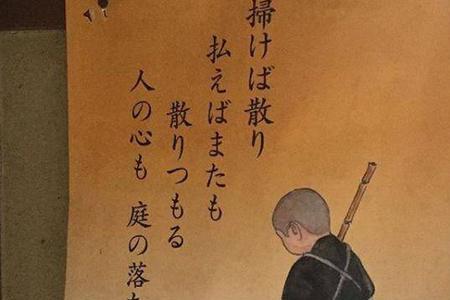 掃けば散り
払えばまたも
散りつもる
人の心も 庭の落